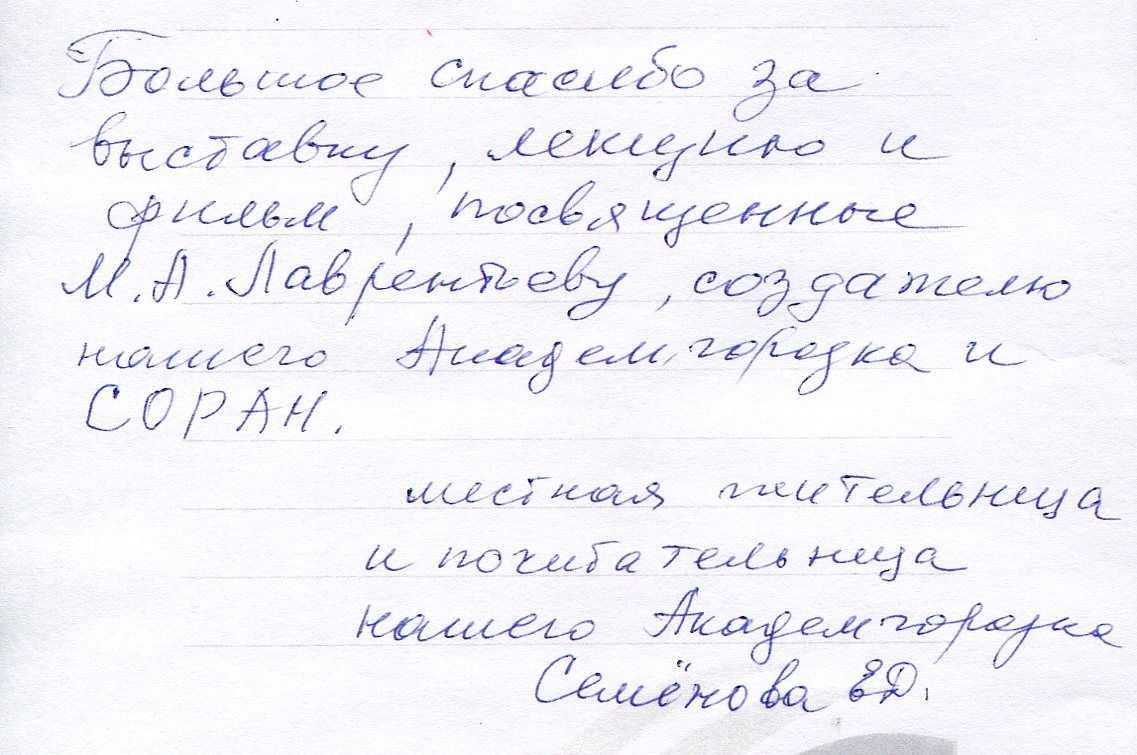 Большое спасибо за
выставку, лекцию и
фильм, посвященные
М.А. Лаврентьеву, создателю
нашего Академгородка и
СОРАН.
местная жительница
и почитательница
нашего Академгородка
Семёнова ЕД.